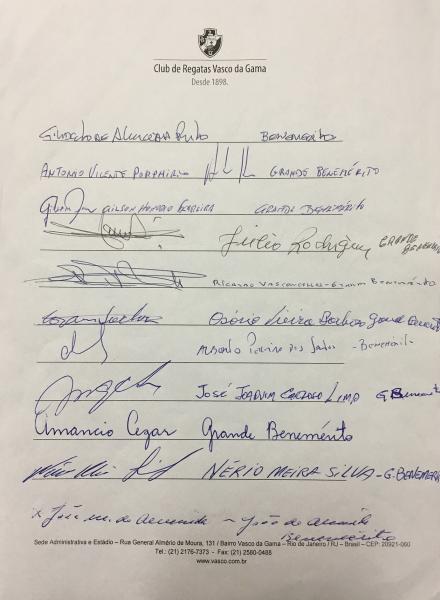 Club de Regatas Vasco da Gama
Desde 1898.
de Almeida Pinto BENEMÉRITO
ANTONIO VICENTE PORPHIRIO GRANDE BENEMÉRITO
GILSON FERREIRA GRANDE BENEMÉRITO
Júlio Rodrigues GRANDE BENEMÉ
RICARDO VASCONCELLOS - GRANDE BENEMÉRITO
Osório Vieira Barbosa Grande
ALBERTO PEREIRA DOS SANTOS - BENEMÉRITO
JOSÉ JOAQUIM CARDOSO LIMA G. Benemérito
Amancio Cezar Grande Benemérito
NÉRIO MEIRA SILVA - G. BENEMÉRI
x João m. de Almeida - João de Almeida
Benemérito
Sede Administrativa e Estádio – Rua General Almério de Moura, 131 / Bairro Vasco da Gama – Rio de Janeiro / RJ – Brasil – CEP: 20921-060
Tel.: (21) 2176-7373 - Fax: (21) 2580-0488
www.vasco.com.br